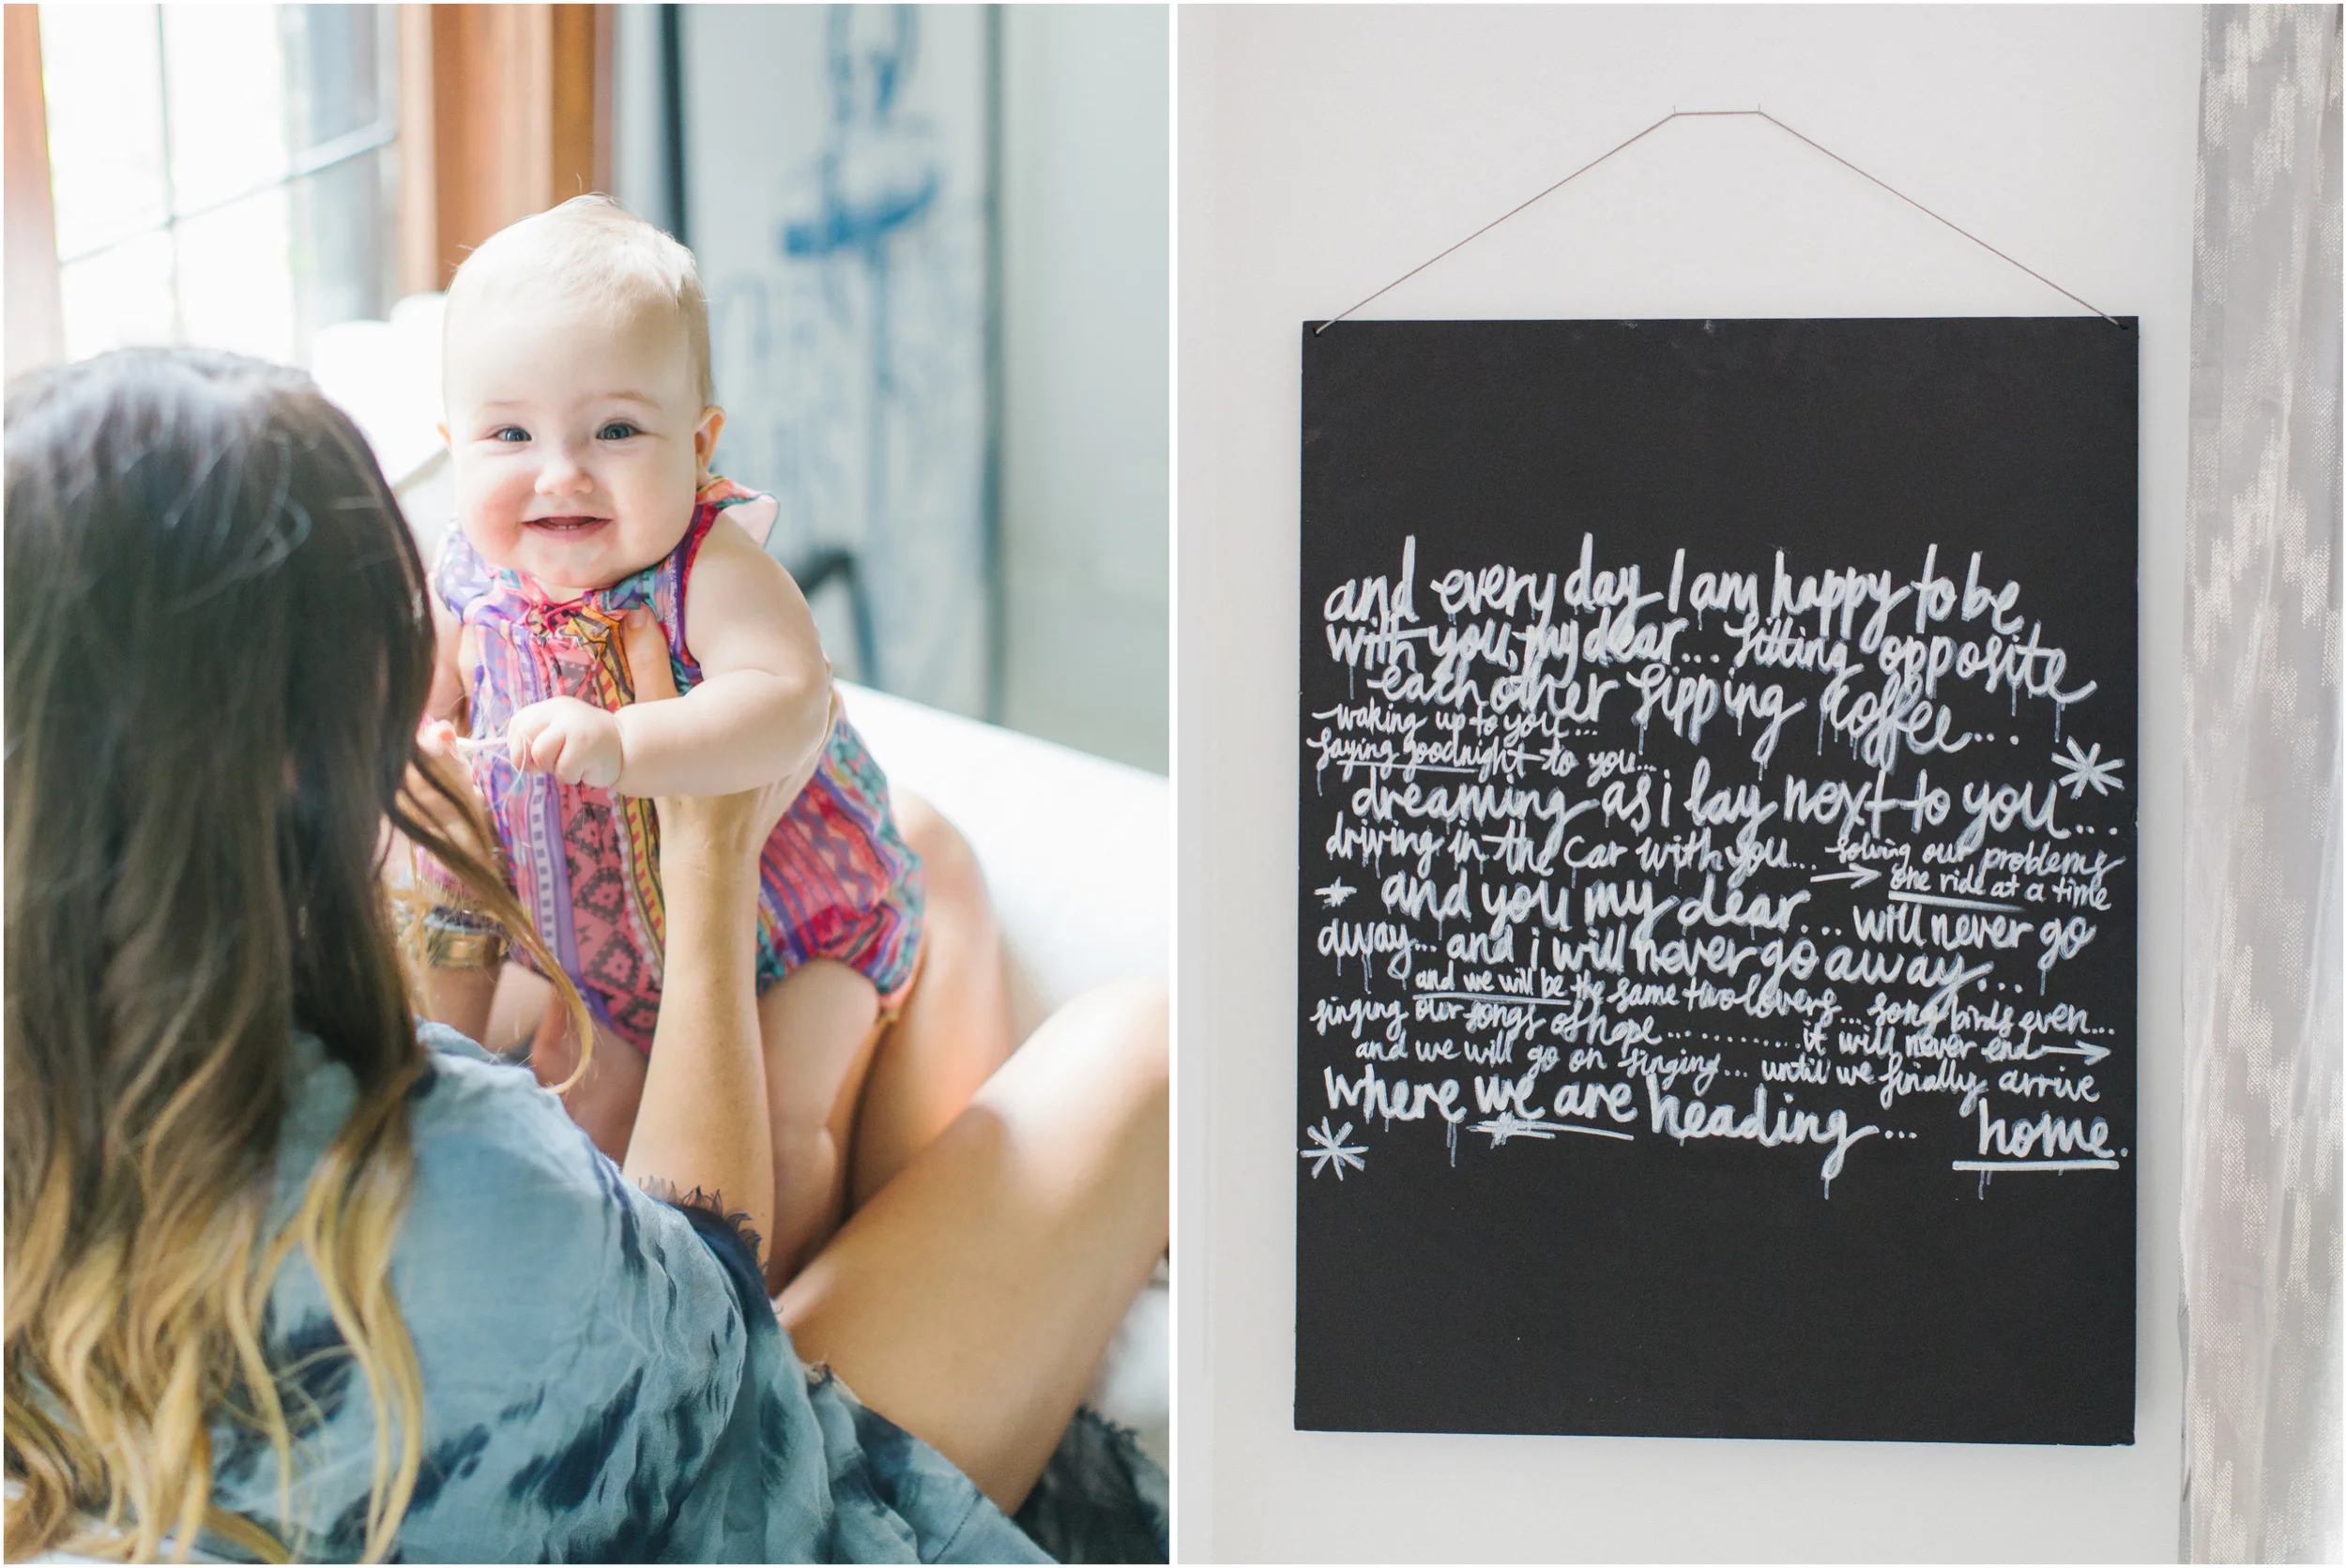 and every day I am happy to be
with you, my dear... sitting opposite
each other sipping coffee...
waking up to you...
saying goodnight to you...
dreaming as i lay next to you...
driving in the car with you... solving our problems
one ride at a time
and you my dear... will never go
away... and i will never go away...
and we will be the same two lovers... song birds even...
singing our songs of hope......... it will never end
and we will go on singing... until we finally arrive
where we are heading... home.